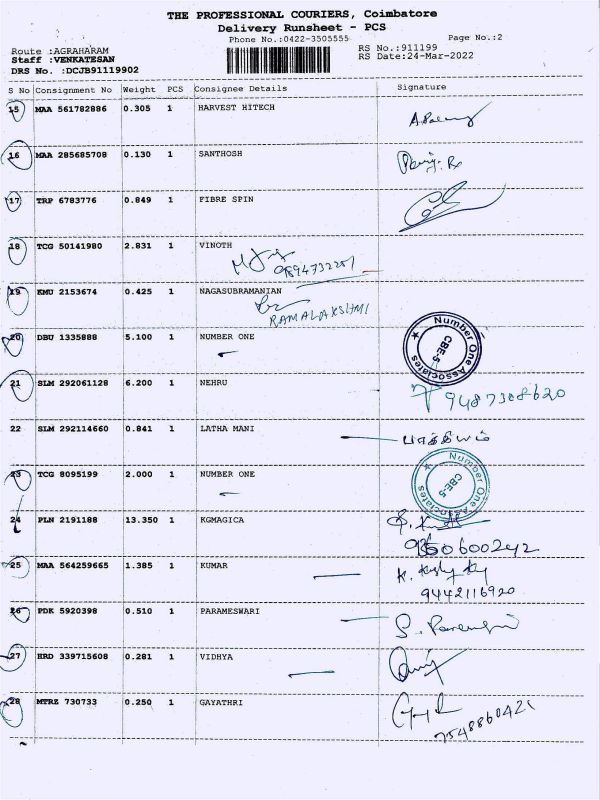 THE PROFESSIONAL COURIERS, Coimbatore
Delivery Runsheet - PCS
Phone No.:0422-3505555
Page No.:2
Route :AGRAHARAM
RS No.:911199
Staff :VENKATESAN
RS Date:24-Mar-2022
DRS No. :DCJB91119902
S No Consignment No Weight PCS Consignee Details Signature
15 MAA 561782886 0.305 1 HARVEST HITECH
16 MAA 285685708 0.130 1 SANTHOSH
17 TRP 6783776 0.849 1 FIBRE SPIN
18 TCG 50141980 2.831 1 VINOTH
19 KMU 2153674 0.425 1 NAGASUBRAMANIAN
RAMALAKSHMI
20 DBU 1335888 5.100 1 NUMBER ONE
Number One Associates
CBE-5
21 SLM 292061128 6.200 1 NEHRU
9487308620
22 SLM 292114660 0.841 1 LATHA MANI
பாக்கியம்
23 TCG 8095199 2.000 1 NUMBER ONE
Number One Associates
CBE-5
24 PLN 2191188 13.350 1 KGMAGICA
25 MAA 564259665 1.385 1 KUMAR
9442116920
26 PDK 5920398 0.510 1 PARAMESWARI
27 HRD 339715608 0.281 1 VIDHYA
28 MTRZ 730733 0.250 1 GAYATHRI
7548860421